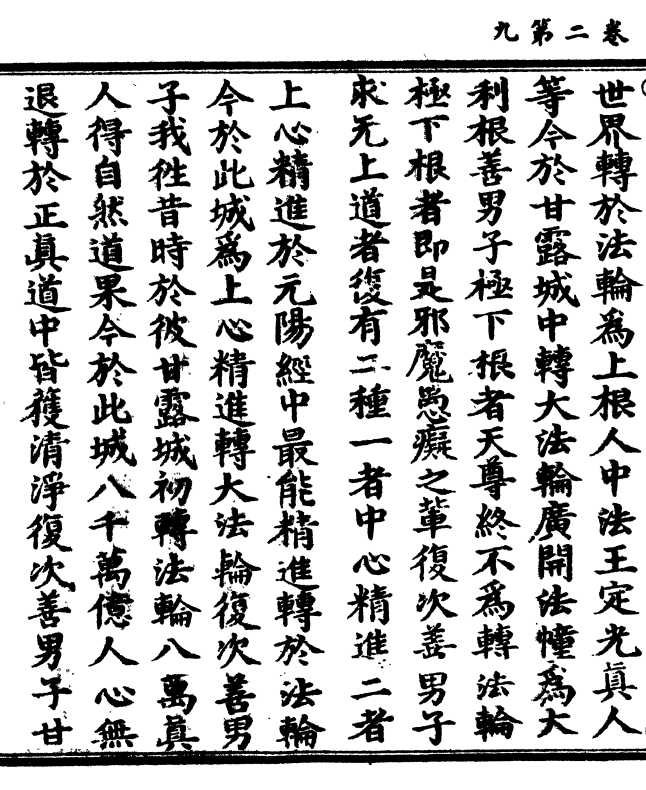 卷二第九
世界轉於法輪為上根人中法王定光真人
等今於甘露城中轉大法輪廣開法幢為大
利根善男子極下根者天尊終不為轉法輪
極下根者即是邪魔愚癡之輩復次善男子
求无上道者復有二種一者中心精進二者
上心精進於元陽經中最能精進轉於法輪
今於此城為上心精進轉大法輪復次善男
子我徃昔時於彼甘露城初轉法輪八萬真
人得自然道果今於此城八千萬億人心無
退轉於正真道中皆獲清淨復次善男子甘